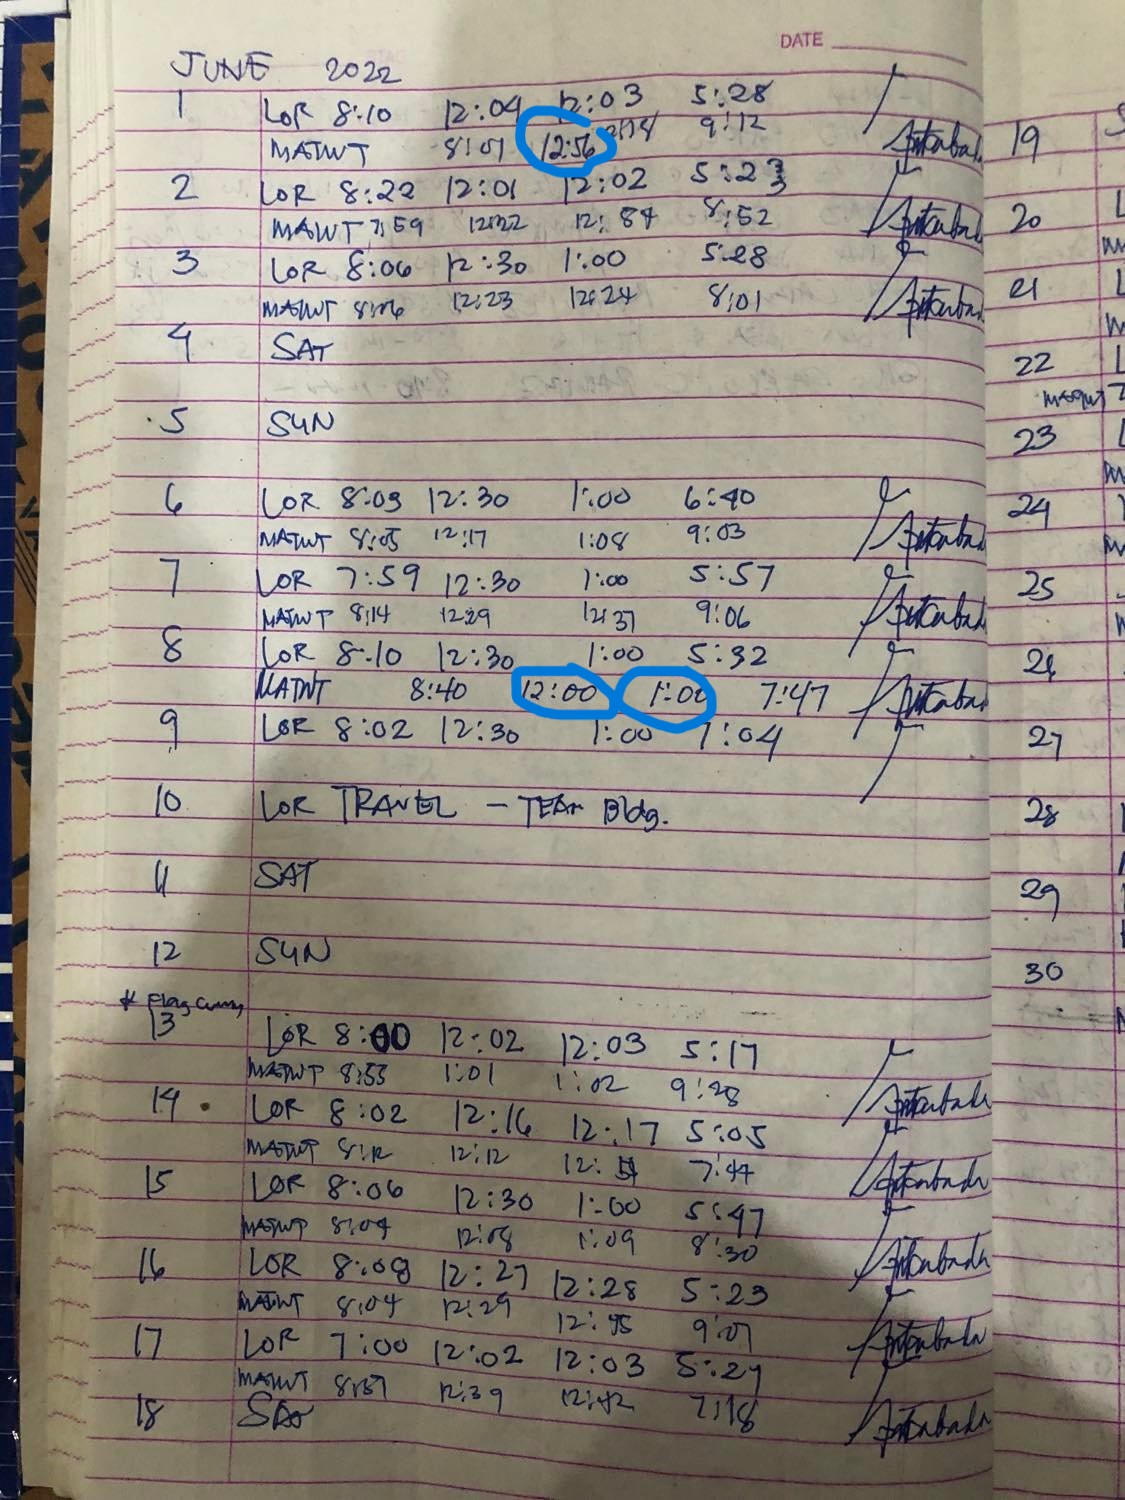 DATE
JUNE 2022
1 LOR 8:10 12:04 12:03 5:28
MATNT 8:01 12:56 9:12
2 LOR 8:22 12:01 12:02 5:23
MATNT 7:59 12:22 12:84 8:52
3 LOR 8:06 12:30 1:00 5:28
MATNT 8:06 12:23 12:24 8:01
4 SAT
5 SUN
6 LOR 8:09 12:30 1:00 6:40
MATNT 8:05 12:17 1:08 9:03
7 LOR 7:59 12:30 1:00 5:57
MATNT 8:14 12:29 12:37 9:06
8 LOR 8:10 12:30 1:00 5:32
MATNT 8:40 12:00 1:00 7:47
9 LOR 8:02 12:30 1:00 7:04
10 LOR TRAVEL - TEAM Bldg.
11 SAT
12 SUN
* Flag
13 LOR 8:00 12:02 12:03 5:17
MATNT 8:55 1:01 1:02 9:28
14 LOR 8:02 12:16 12:17 5:05
MATNT 8:12 12:12 7:44
15 LOR 8:06 12:30 1:00 5:47
MATNT 8:04 12:08 1:09 8:30
16 LOR 8:08 12:27 12:28 5:23
MATNT 8:04 12:29 12:45 9:07
17 LOR 7:00 12:02 12:03 5:29
MATNT 8:37 12:39 12:42 7:18
18
19
20
21
22
MATNT 7
23
24
25
26
27
28
29
30